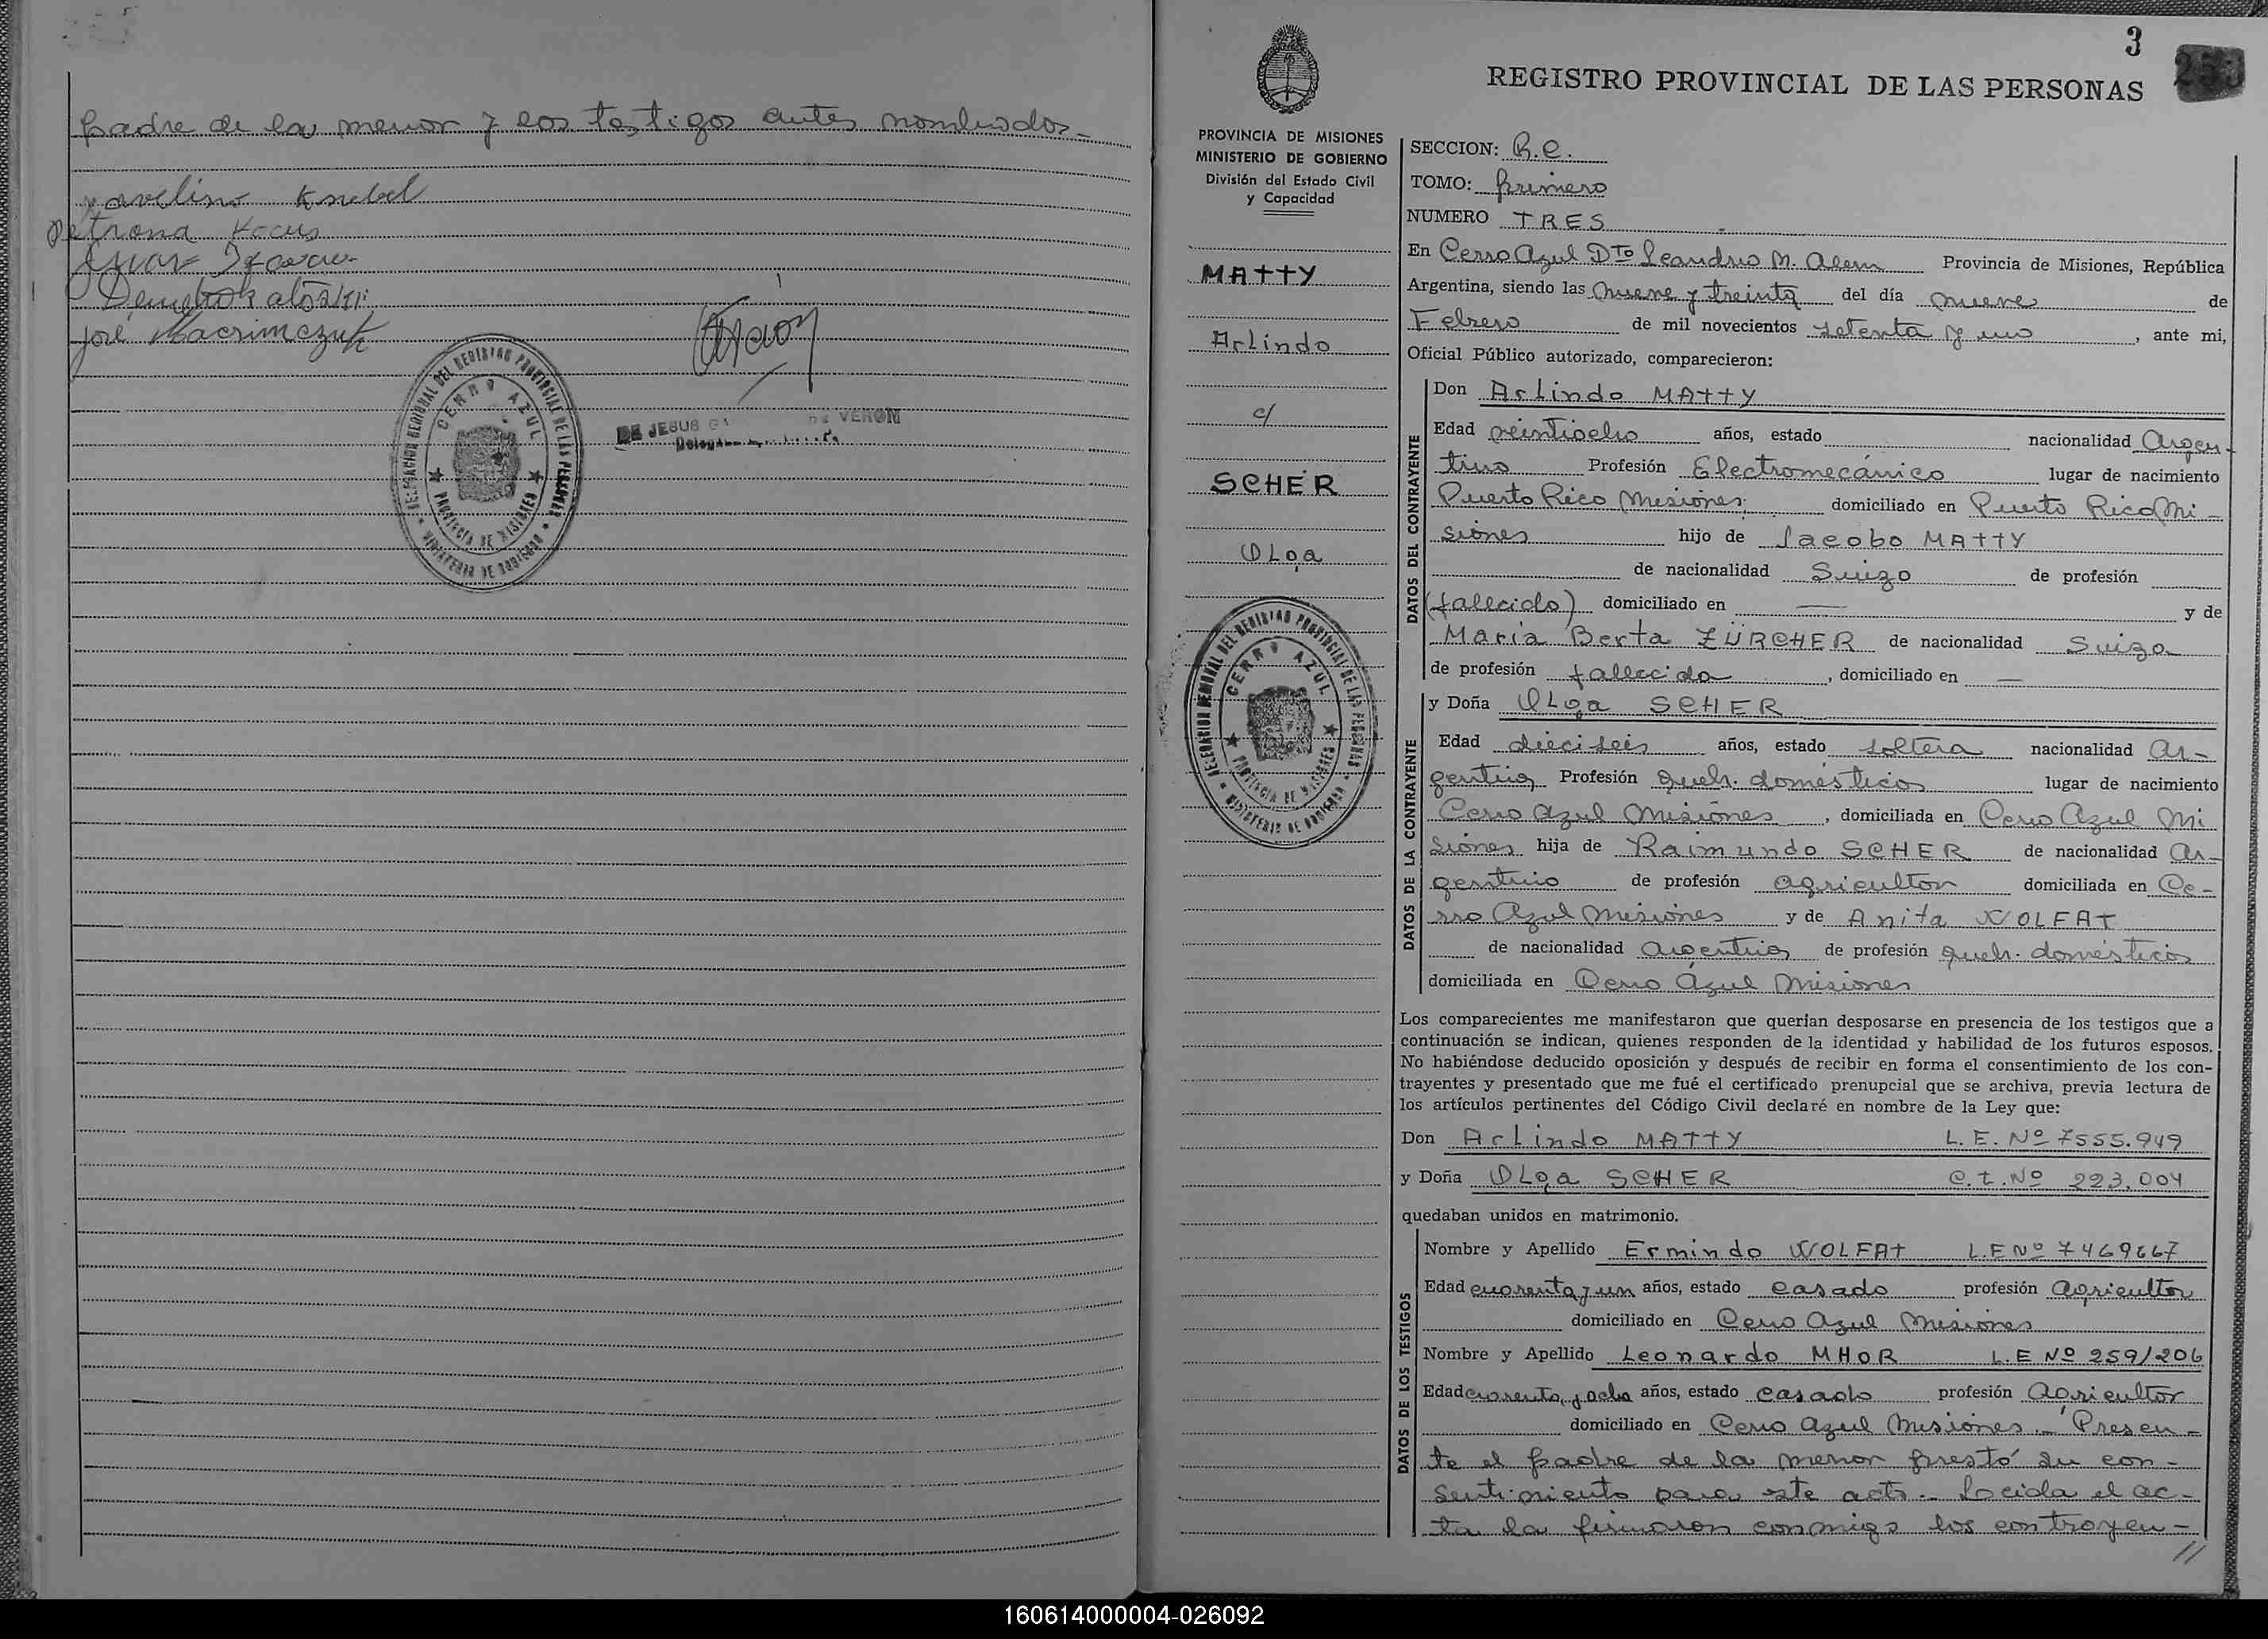 padre de la menor y los testigos antes nombrados-
avelino Knebel
Petrona
José
DELEGACION REGIONAL DEL REGISTRO PROVINCIAL DE LAS PERSONAS
CERRO AZUL
PROVINCIA DE MISIONES
MINISTERIO DE GOBIERNO
DE JESUS G DE VERON
3
253
REGISTRO PROVINCIAL DE LAS PERSONAS
PROVINCIA DE MISIONES
MINISTERIO DE GOBIERNO
División del Estado Civil
y Capacidad
MATTY
Arlindo
c/
SCHER
OLga
DELEGACION REGIONAL DEL REGISTRO PROVINCIAL DE LAS PERSONAS
CERRO AZUL
PROVINCIA DE MISIONES
MINISTERIO DE GOBIERNO
SECCION: R.C.
TOMO: primero
NUMERO TRES
En Cerro Azul Dto Leandro N. Alem Provincia de Misiones, República
Argentina, siendo las nueve y treinta del día nueve de
Febrero de mil novecientos setenta y uno, ante mi,
Oficial Público autorizado, comparecieron:
DATOS DEL CONTRAYENTE
Don Arlindo MATTY
Edad veintiocho años, estado nacionalidad Argen-
tino Profesión Electromecánico lugar de nacimiento
Puerto Rico Misiones domiciliado en Puerto Rico Mi-
siones hijo de Jacobo MATTY
de nacionalidad Suizo de profesión
(fallecido) domiciliado en — y de
María Berta ZÜRCHER de nacionalidad Suiza
de profesión fallecida, domiciliado en —
DATOS DE LA CONTRAYENTE
y Doña OLga SCHER
Edad dieciseis años, estado soltera nacionalidad Ar-
gentina Profesión queh. domésticos lugar de nacimiento
Cerro Azul Misiones, domiciliada en Cerro Azul Mi
siones hija de Raimundo SCHER de nacionalidad Ar-
gentino de profesión agricultor domiciliada en Ce-
rro Azul Misiones y de Anita WOLFAT
de nacionalidad argentina de profesión queh. domésticos
domiciliada en Cerro Azul Misiones
Los comparecientes me manifestaron que querían desposarse en presencia de los testigos que a
continuación se indican, quienes responden de la identidad y habilidad de los futuros esposos.
No habiéndose deducido oposición y después de recibir en forma el consentimiento de los con-
trayentes y presentado que me fué el certificado prenupcial que se archiva, previa lectura de
los artículos pertinentes del Código Civil declaré en nombre de la Ley que:
Don Arlindo MATTY L.E. Nº 7555.949
y Doña OLga SCHER C.I. Nº 223.004
quedaban unidos en matrimonio.
DATOS DE LOS TESTIGOS
Nombre y Apellido Ermindo WOLFAT L.E Nº 7469667
Edad cuarenta y un años, estado casado profesión agricultor
domiciliado en Cerro Azul Misiones
Nombre y Apellido Leonardo MHOR L.E Nº 259/206
Edad cuarenta y ocho años, estado casado profesión Agricultor
domiciliado en Cerro Azul Misiones.- Presen-
te el padre de la menor prestó su con-
sentimiento para este acto.- Leida el ac-
ta la firmaron conmigo los contrayen-
//
160614000004-026092